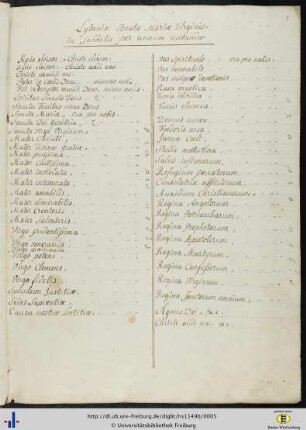 Lytaniæ Beatæ Mariæ Virginis
in Sabbatis per annum cantandæ
Kyrie eleison. Christe eleison.
Kyrie eleison. Christe audi nos.
Christe exaudi nos.
Pater de cælis Deus, miserere nobis.
Fili redemptor mundi Deus, miserere nobis.
Spiritus Sancte Deus
Sancta Trinitas unus Deus
Sancta Maria, ora pro nobis
Sancta Dei Genitrix,
Sancta Virgo Virginum,
Mater Christi
Mater divinæ gratiæ,
Mater purissima
Mater castissima
Mater inviolata
Mater intemerata
Mater amabilis
Mater admirabilis
Mater Creatoris
Mater Salvatoris
Virgo prudentissima
Virgo veneranda
Virgo prædicanda
Virgo potens
Virgo Clemens
Virgo fidelis
Speculum Justitiæ
Sedes Sapientiæ
Causa nostræ lætitiæ
Vas Spirituale ora pro nobis
Vas honorabile
Vas insigne devotionis
Rosa mystica
Turris eburnea
Domus aurea
Fœderis arca
Janua Cœli
Stella matutina
Salus infirmorum
Refugium peccatorum
Consolatrix afflictorum
Auxilium Christianorum
Regina Angelorum
Regina Patriarcharum
Regina Prophetarum
Regina Apostolorum
Regina Martyrum
Regina Confessorum
Regina Virginum
Regina Sanctorum omnium
Agnus Dei &c.
Christe audi nos &c.
http://dl.ub.uni-freiburg.de/diglit/hs1149b/0005
© Universitätsbibliothek Freiburg
Baden-Württemberg